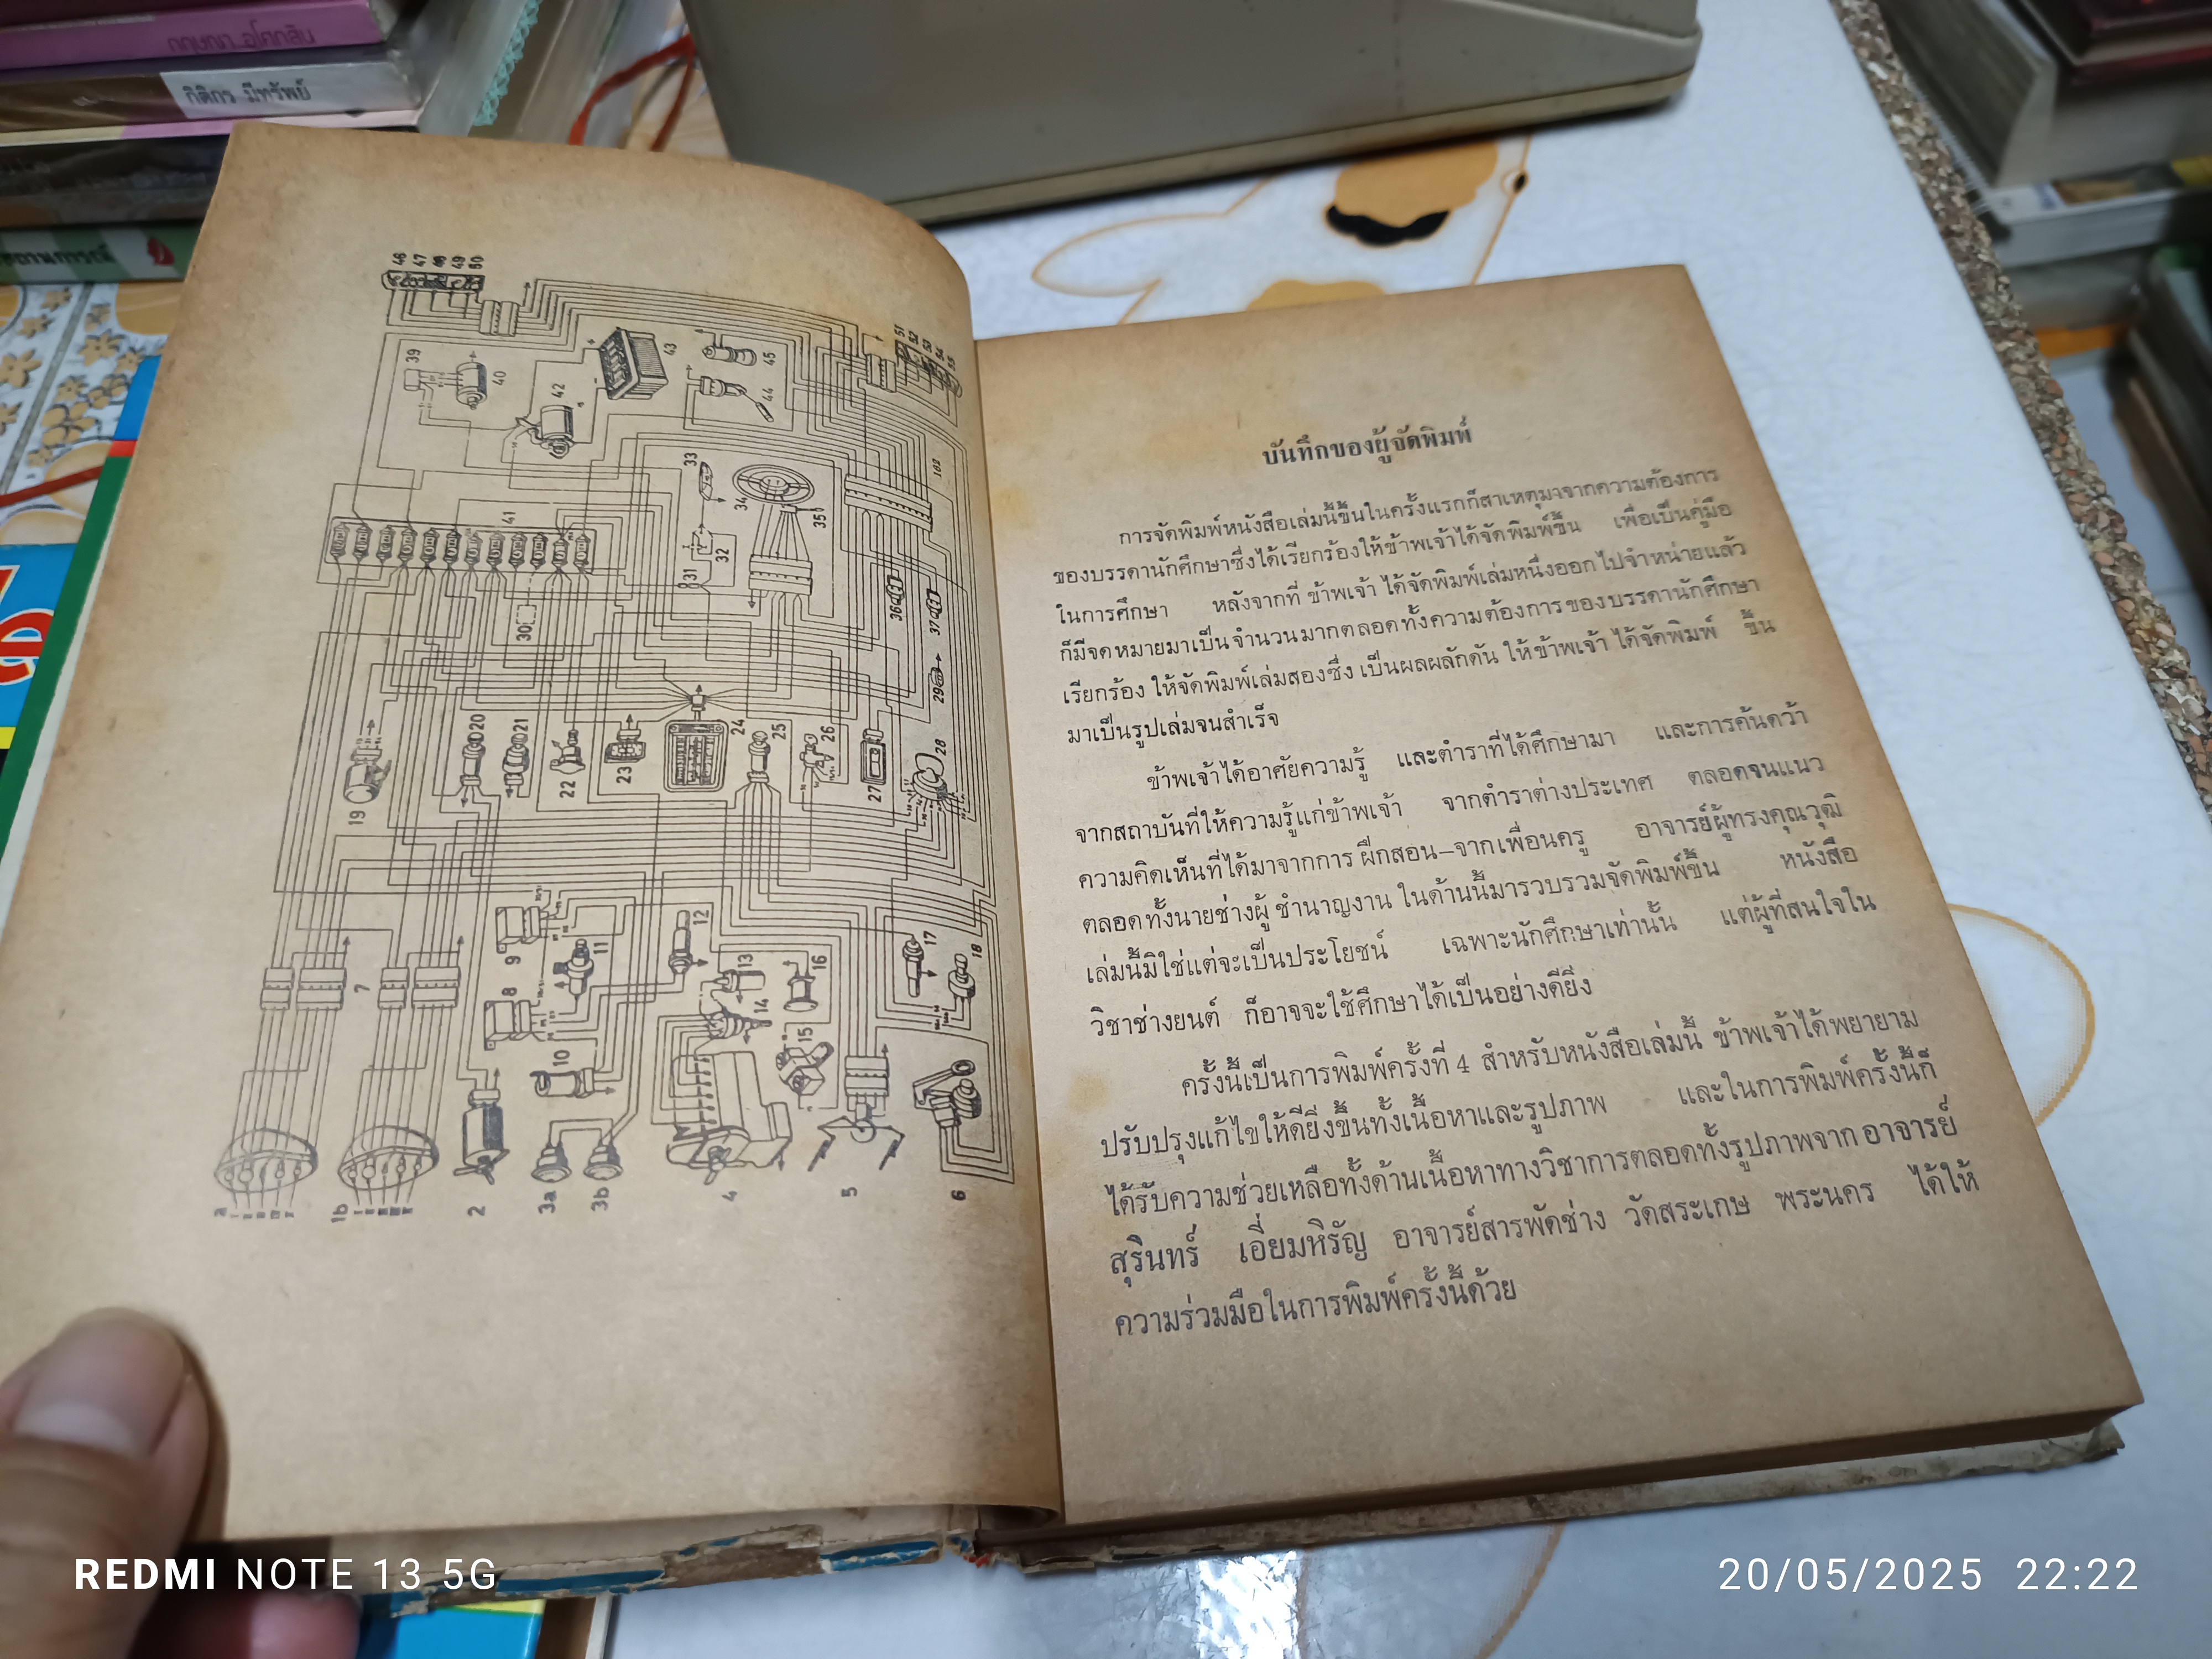 กฤษณา อโศกสิน
กิติกร มีทรัพย์
บันทึกของผู้จัดพิมพ์
การจัดพิมพ์หนังสือเล่มนี้ขึ้นในครั้งแรกก็สาเหตุมาจากความต้องการ
ของบรรดานักศึกษาซึ่งได้เรียกร้องให้ข้าพเจ้าได้จัดพิมพ์ขึ้น เพื่อเป็นคู่มือ
ในการศึกษา หลังจากที่ ข้าพเจ้า ได้จัดพิมพ์เล่มหนึ่งออกไปจำหน่ายแล้ว
ก็มีจดหมายมาเป็นจำนวนมากตลอดทั้งความต้องการของบรรดานักศึกษา
เรียกร้อง ให้จัดพิมพ์เล่มสองซึ่ง เป็นผลผลักดัน ให้ข้าพเจ้า ได้จัดพิมพ์ ขึ้น
มาเป็นรูปเล่มจนสำเร็จ
ข้าพเจ้าได้อาศัยความรู้ และตำราที่ได้ศึกษามา และการค้นคว้า
จากสถาบันที่ให้ความรู้แก่ข้าพเจ้า จากตำราต่างประเทศ ตลอดจนแนว
ความคิดเห็นที่ได้มาจากการ ฝึกสอน–จากเพื่อนครู อาจารย์ผู้ทรงคุณวุฒิ
ตลอดทั้งนายช่างผู้ ชำนาญงาน ในด้านนี้มารวบรวมจัดพิมพ์ขึ้น หนังสือ
เล่มนี้มิใช่แต่จะเป็นประโยชน์ เฉพาะนักศึกษาเท่านั้น แต่ผู้ที่สนใจใน
วิชาช่างยนต์ ก็อาจจะใช้ศึกษาได้เป็นอย่างดียิ่ง
ครั้งนี้เป็นการพิมพ์ครั้งที่ 4 สำหรับหนังสือเล่มนี้ ข้าพเจ้าได้พยายาม
ปรับปรุงแก้ไขให้ดียิ่งขึ้นทั้งเนื้อหาและรูปภาพ และในการพิมพ์ครั้งนี้ก็
ได้รับความช่วยเหลือทั้งด้านเนื้อหาทางวิชาการตลอดทั้งรูปภาพจาก อาจารย์
สุรินทร์ เอี่ยมหิรัญ อาจารย์สารพัดช่าง วัดสระเกษ พระนคร ได้ให้
ความร่วมมือในการพิมพ์ครั้งนี้ด้วย
46
47
48
49
50
39
40
42
43
44
45
51
52
53
54
55
41
33
34
35
32
31
30
36
37
29
20
21
22
23
24
25
26
27
28
19
7
9
8
10
11
12
13
14
15
16
17
18
1b
2
3a
3b
4
5
6
REDMI NOTE 13 5G
20/05/2025 22:22